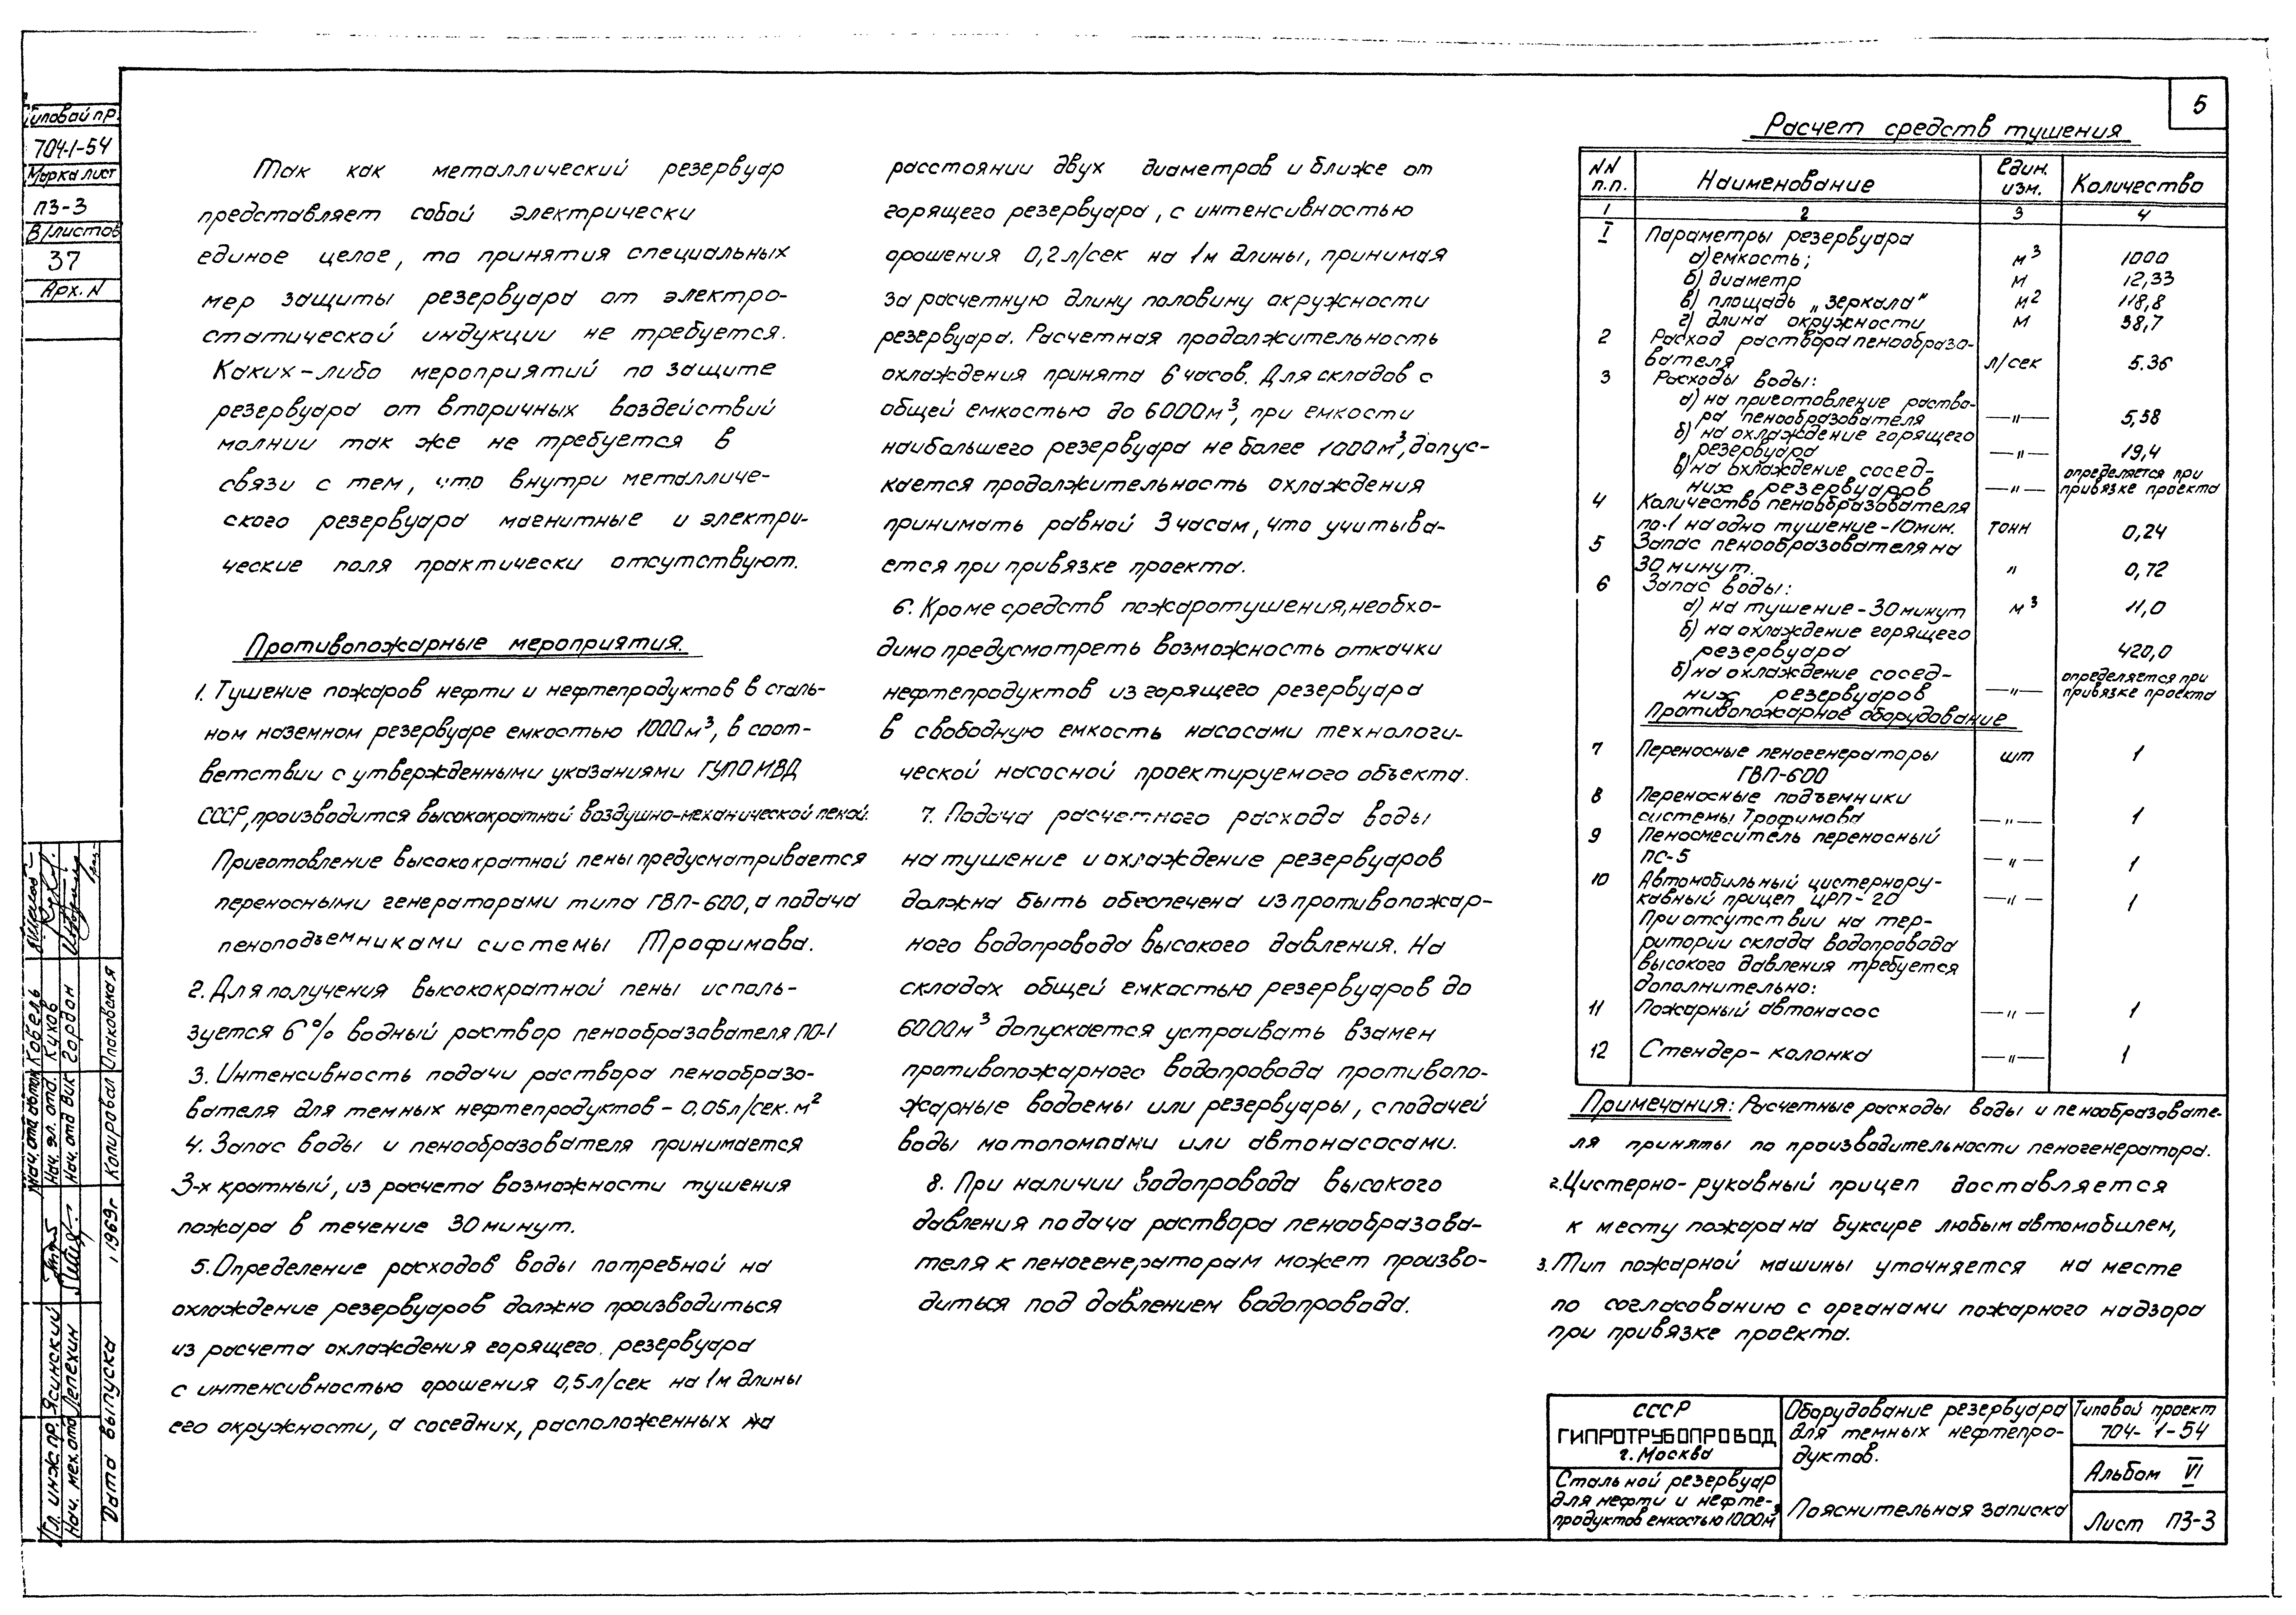 5
Типовой пр.
704-1-54
Марка лист
ПЗ-3
В/листов
37
Арх. N
Так как металлический резервуар
представляет собой электрически
единое целое, то принятия специальных
мер защиты резервуара от электро-
статической индукции не требуется.
Каких-либо мероприятий по защите
резервуара от вторичных воздействий
молнии так же не требуется в
связи с тем, что внутри металличе-
ского резервуара магнитные и электри-
ческие поля практически отсутствуют.
Противопожарные мероприятия.
1. Тушение пожаров нефти и нефтепродуктов в сталь-
ном наземном резервуаре емкостью 1000м³, в соот-
ветствии с утвержденными указаниями ГУПО МВД
СССР, производится высокократной воздушно-механической пеной.
Приготовление высокократной пены предусматривается
переносными генераторами типа ГВП-600, а подача
пеноподъемниками системы Трофимова.
2. Для получения высокократной пены исполь-
зуется 6% водный раствор пенообразователя ПО-1
3. Интенсивность подачи раствора пенообразо-
вателя для темных нефтепродуктов - 0,05л/сек.м²
4. Запас воды и пенообразователя принимается
3-х кратный, из расчета возможности тушения
пожара в течение 30 минут.
5. Определение расходов воды потребной на
охлаждение резервуаров должно производиться
из расчета охлаждения горящего резервуара
с интенсивностью орошения 0,5л/сек на 1м длины
его окружности, а соседних, расположенных на
расстоянии двух диаметров и ближе от
горящего резервуара, с интенсивностью
орошения 0,2л/сек на 1м длины, принимая
за расчетную длину половину окружности
резервуара. Расчетная продолжительность
охлаждения принята 6 часов. Для складов с
общей емкостью до 6000м³, при емкости
наибольшего резервуара не более 1000м³, допус-
кается продолжительность охлаждения
принимать равной 3 часам, что учитыва-
ется при привязке проекта.
6. Кроме средств пожаротушения, необхо-
димо предусмотреть возможность откачки
нефтепродуктов из горящего резервуара
в свободную емкость насосами технологи-
ческой насосной проектируемого объекта.
7. Подача расчетного расхода воды
на тушение и охлаждение резервуаров
должна быть обеспечена из противопожар-
ного водопровода высокого давления. На
складах общей емкостью резервуаров до
6000м³ допускается устраивать взамен
противопожарного водопровода противопо-
жарные водоемы или резервуары, с подачей
воды мотопомпами или автонасосами.
8. При наличии водопровода высокого
давления подача раствора пенообразова-
теля к пеногенераторам может произво-
диться под давлением водопровода.
Расчет средств тушения
NN п.п. Наименование Един. изм. Количество
1 2 3 4
I Параметры резервуара
а) емкость; м³ 1000
б) диаметр м 12,33
в) площадь „зеркала" м² 118,8
г) длина окружности м 38,7
2 Расход раствора пенообразо-
вателя л/сек 5.36
3 Расходы воды:
а) на приготовление раство-
ра пенообразователя —"— 5,58
б) на охлаждение горящего
резервуара —"— 19,4
в) на охлаждение сосед- определяется при
них резервуаров —"— привязке проекта
4 Количество пенообразователя
по-1 на одно тушение-10мин. тонн 0,24
5 Запас пенообразователя на
30 минут. " 0,72
6 Запас воды:
а) на тушение-30 минут м³ 11,0
б) на охлаждение горящего
резервуара 420,0
б) на охлаждение сосед- определяется при
них резервуаров —"— привязке проекта
Противопожарное оборудование
7 Переносные пеногенераторы шт 1
ГВП-600
8 Переносные подъемники
системы Трофимова —"— 1
9 Пеносмеситель переносный
ПС-5 —"— 1
10 Автомобильный цистернору-
кавный прицеп ЦРП-20 —"— 1
При отсутствии на тер-
ритории склада водопровода
высокого давления требуется
дополнительно:
11 Пожарный автонасос —"— 1
12 Стендер-колонка —"— 1
Примечания: Расчетные расходы воды и пенообразовате-
ля приняты по производительности пеногенератора.
2. Цистерно-рукавный прицеп доставляется
к месту пожара на буксире любым автомобилем,
3. Тип пожарной машины уточняется на месте
по согласованию с органами пожарного надзора
при привязке проекта.
СССР
ГИПРОТРУБОПРОВОД
г. Москва
Стальной резервуар
для нефти и нефте-
продуктов емкостью 1000м³
Оборудование резервуара
для темных нефтепро-
дуктов.
Пояснительная записка
Типовой проект
704-1-54
Альбом VI
Лист ПЗ-3
Гл. инж. пр. Ясинский
Нач. мех. отд Лепехин
Дата выпуска 1969г.
Кобель
Нач. эл. отд. Кухов
Нач. отд ВиК Гордон
Копировал Опаковская